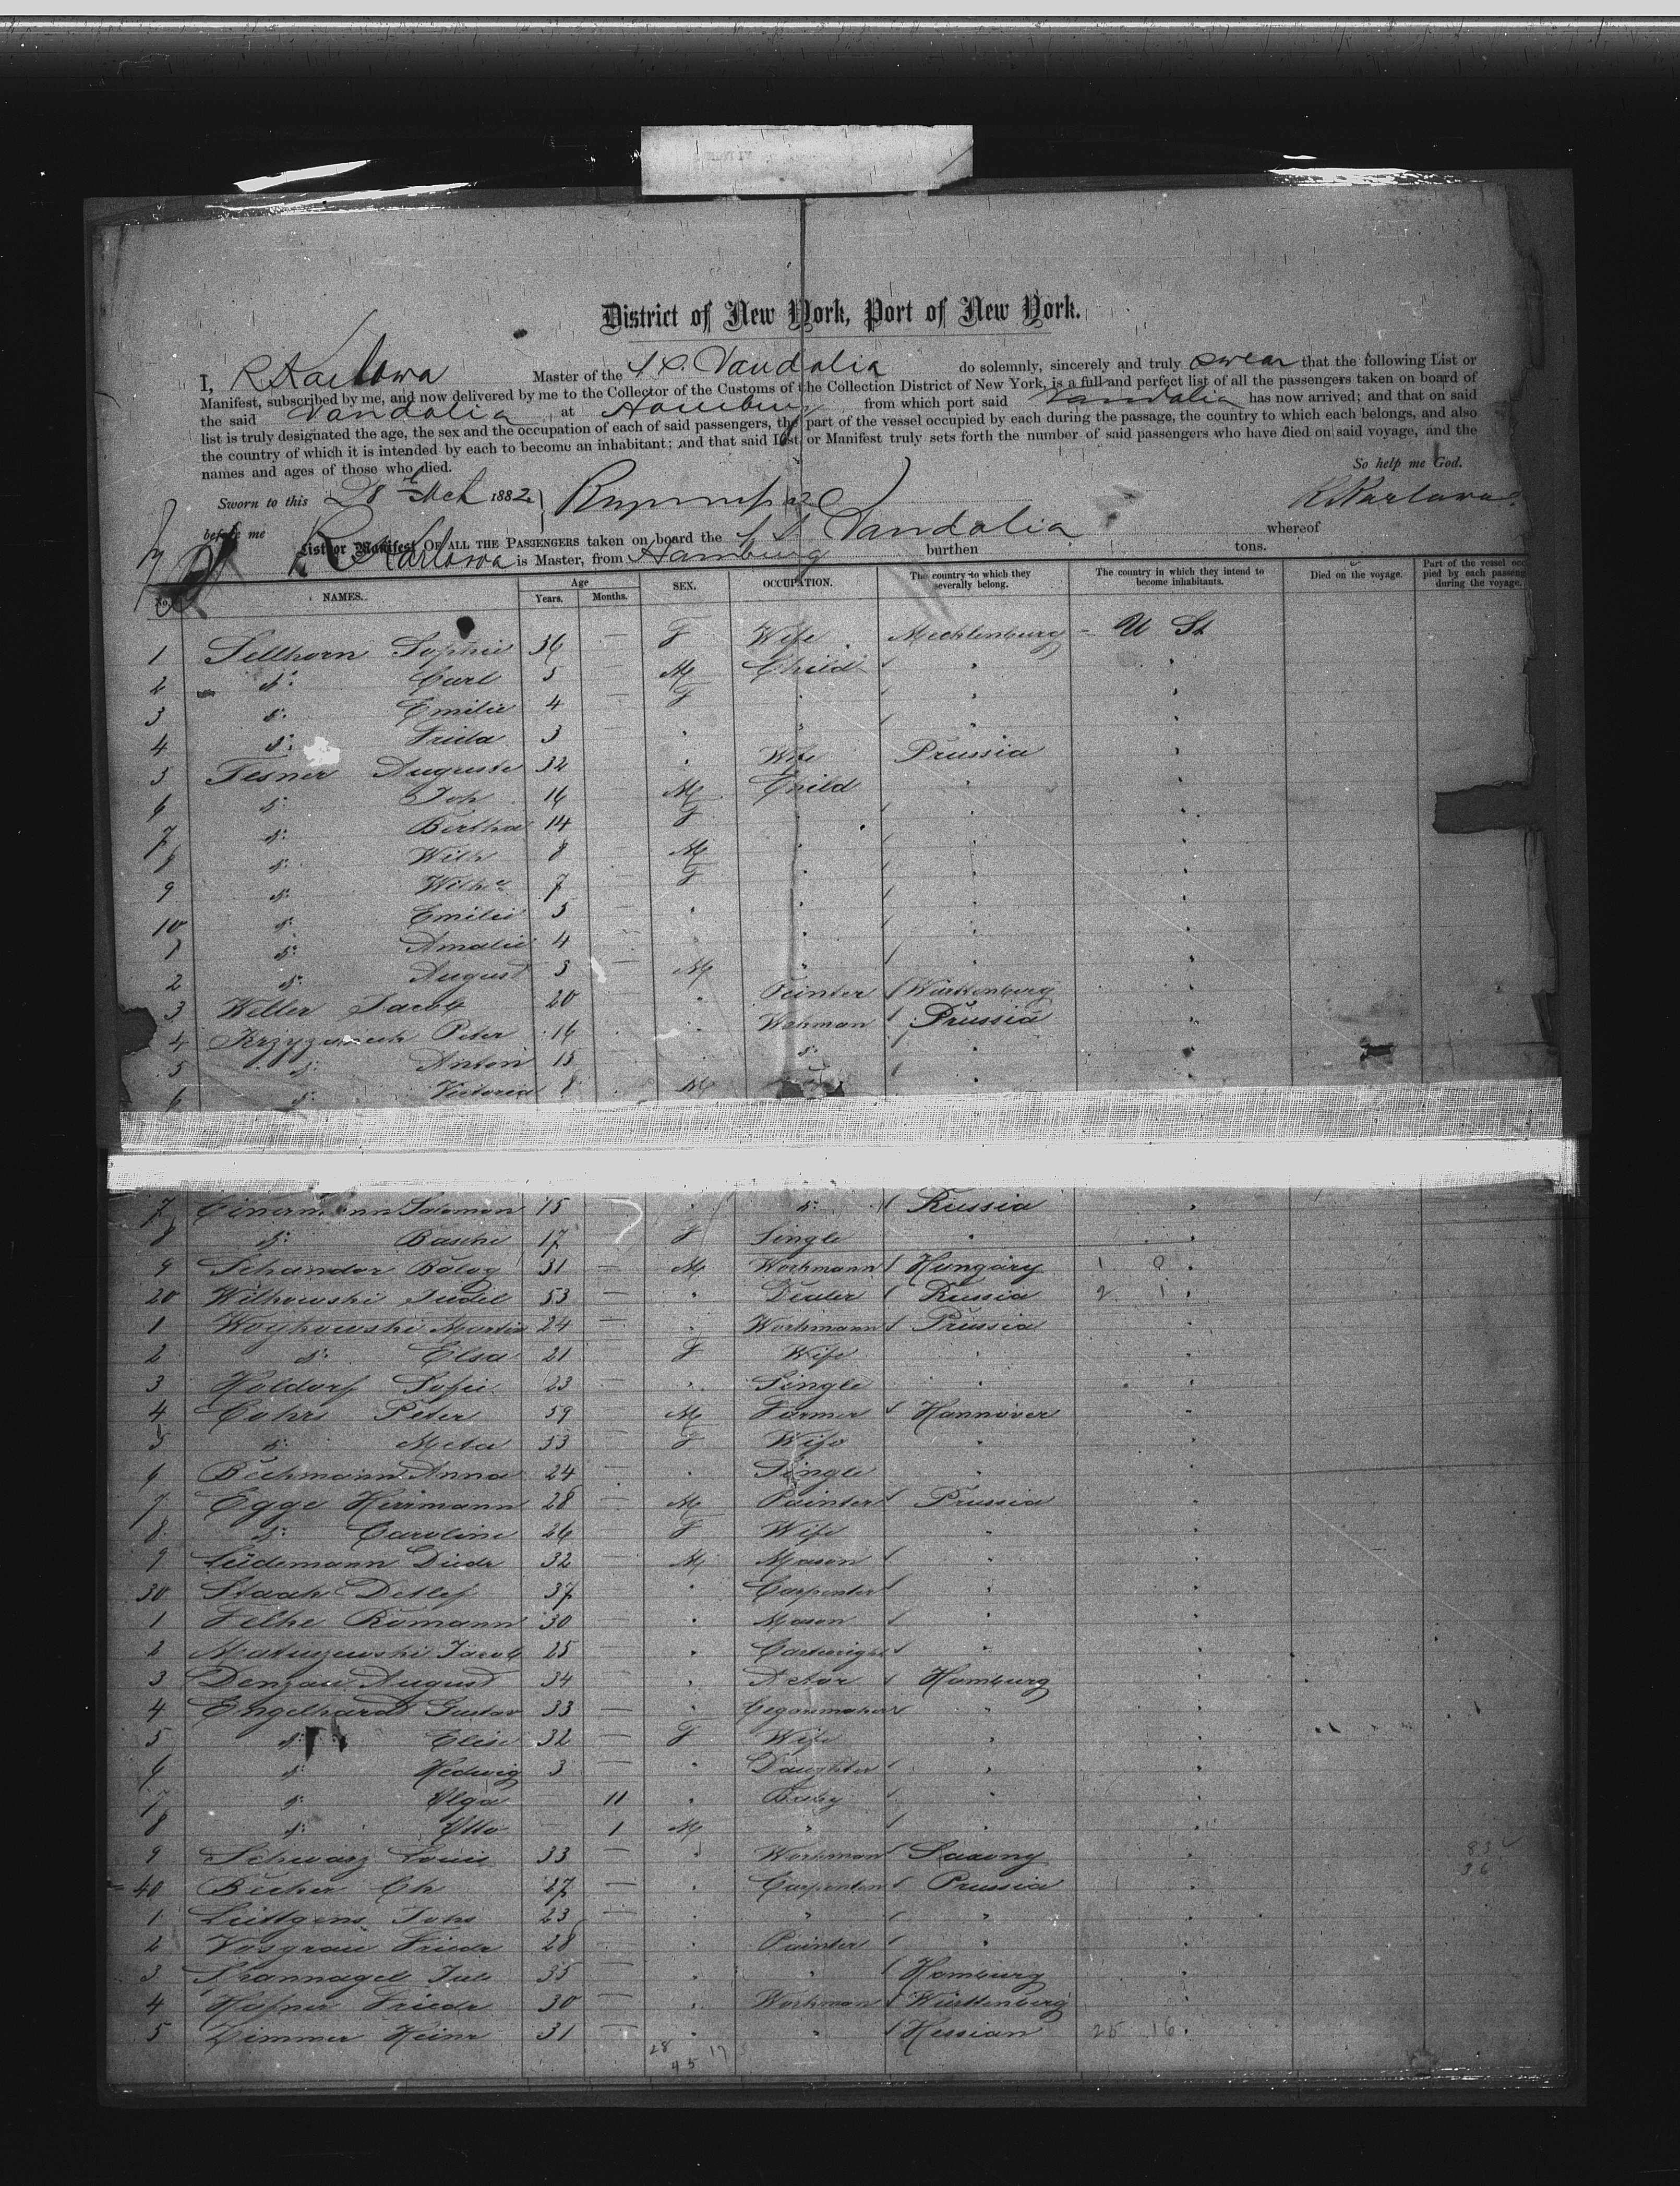 District of New York, Port of New York.
I, R Karlowa Master of the S. S. Vandalia do solemnly, sincerely and truly swear that the following List or
Manifest, subscribed by me, and now delivered by me to the Collector of the Customs of the Collection District of New York, is a full and perfect list of all the passengers taken on board of
the said Vandalia at Hamburg from which port said Vandalia has now arrived; and that on said
list is truly designated the age, the sex and the occupation of each of said passengers, the part of the vessel occupied by each during the passage, the country to which each belongs, and also
the country of which it is intended by each to become an inhabitant; and that said List or Manifest truly sets forth the number of said passengers who have died on said voyage, and the
names and ages of those who died.
So help me God.
Sworn to this 28th 1882 R Karlowa
before me
List or Manifest OF ALL THE PASSENGERS taken on board the S. S. Vandalia whereof
R Karlowa is Master, from Hamburg burthen tons.
No. NAMES. Age Years. Months. SEX. OCCUPATION. The country to which they severally belong. The country in which they intend to become inhabitants. Died on the voyage. Part of the vessel occupied by each passenger during the voyage.
1 Sellhorn Sophie 36 — F Wife Mecklenburg U St
2 d: Carl 5 — M Child "
3 d: Emilie 4 — F " "
4 d: Frieda 3 " " "
5 Tesner Auguste 32 " Wife Prussia "
6 d: Joh 16 M Child " "
7 d: Bertha 14 F " " "
8 d: Wilh 8 M " " "
9 d: Wilhe 7 F " " "
10 d: Emilie 5 — " " " "
1 d: Amalie 4 — " " "
2 d: August 3 — M " " "
3 Weller Jacob 20 — " Painter Württenberg "
4 Peter 16 " Wohman Prussia "
5 d: Anton 15 — " d: " "
6 d: Victoria 8 M "
7 Salomon 15 " d: Russia "
8 d: Basche 17 — F Single " "
9 Schandor Balog 31 — M Workmann Hungary 1 0 "
20 Witkowski Judel 53 — " Dealer Russia 2 1 "
1 Woykowski Martin 24 — " Workmann Prussia "
2 d: Elsa 21 F Wife " "
3 Holdorf Sofie 23 — " Single " "
4 Cohrs Peter 59 — M Farmer Hannover "
5 d: Meta 53 — F Wife " "
6 Beckmann Anna 24 — " Single " "
7 Egge Herrmann 28 — M Painter Prussia "
8 d: Caroline 26 — F Wife " "
9 Lüdemann Diedr 32 — M Mason " "
30 Staack Detlef 37 — " Carpenter " "
1 Felhe Romann 30 — " Mason " "
2 Jacob 25 — " Cartwright " "
3 Denzau August 34 — " Actor Hamburg "
4 Engelhardt Gustav 33 — " Cegarmaker " "
5 d: Elise 32 — F Wife " "
6 d: Hedwig 3 — " Daughter " "
7 d: Olga 11 " Baby " "
8 d: Otto — 1 M " " "
9 Schwarz Louis 33 — " Workman Saxony "
40 Becher Ch 27 — " Carpenter Prussia "
1 Lüttgens Johs 23 — " " " "
2 Vosgrau Friedr 28 — " Painter " "
3 Spannagel Jul 35 — " " Hamburg "
4 Hafner Friedr 30 — " Workman Württenberg "
5 Zimmer Heinr 31 — " " Hessian 25 16 "
28 17
45
83
36